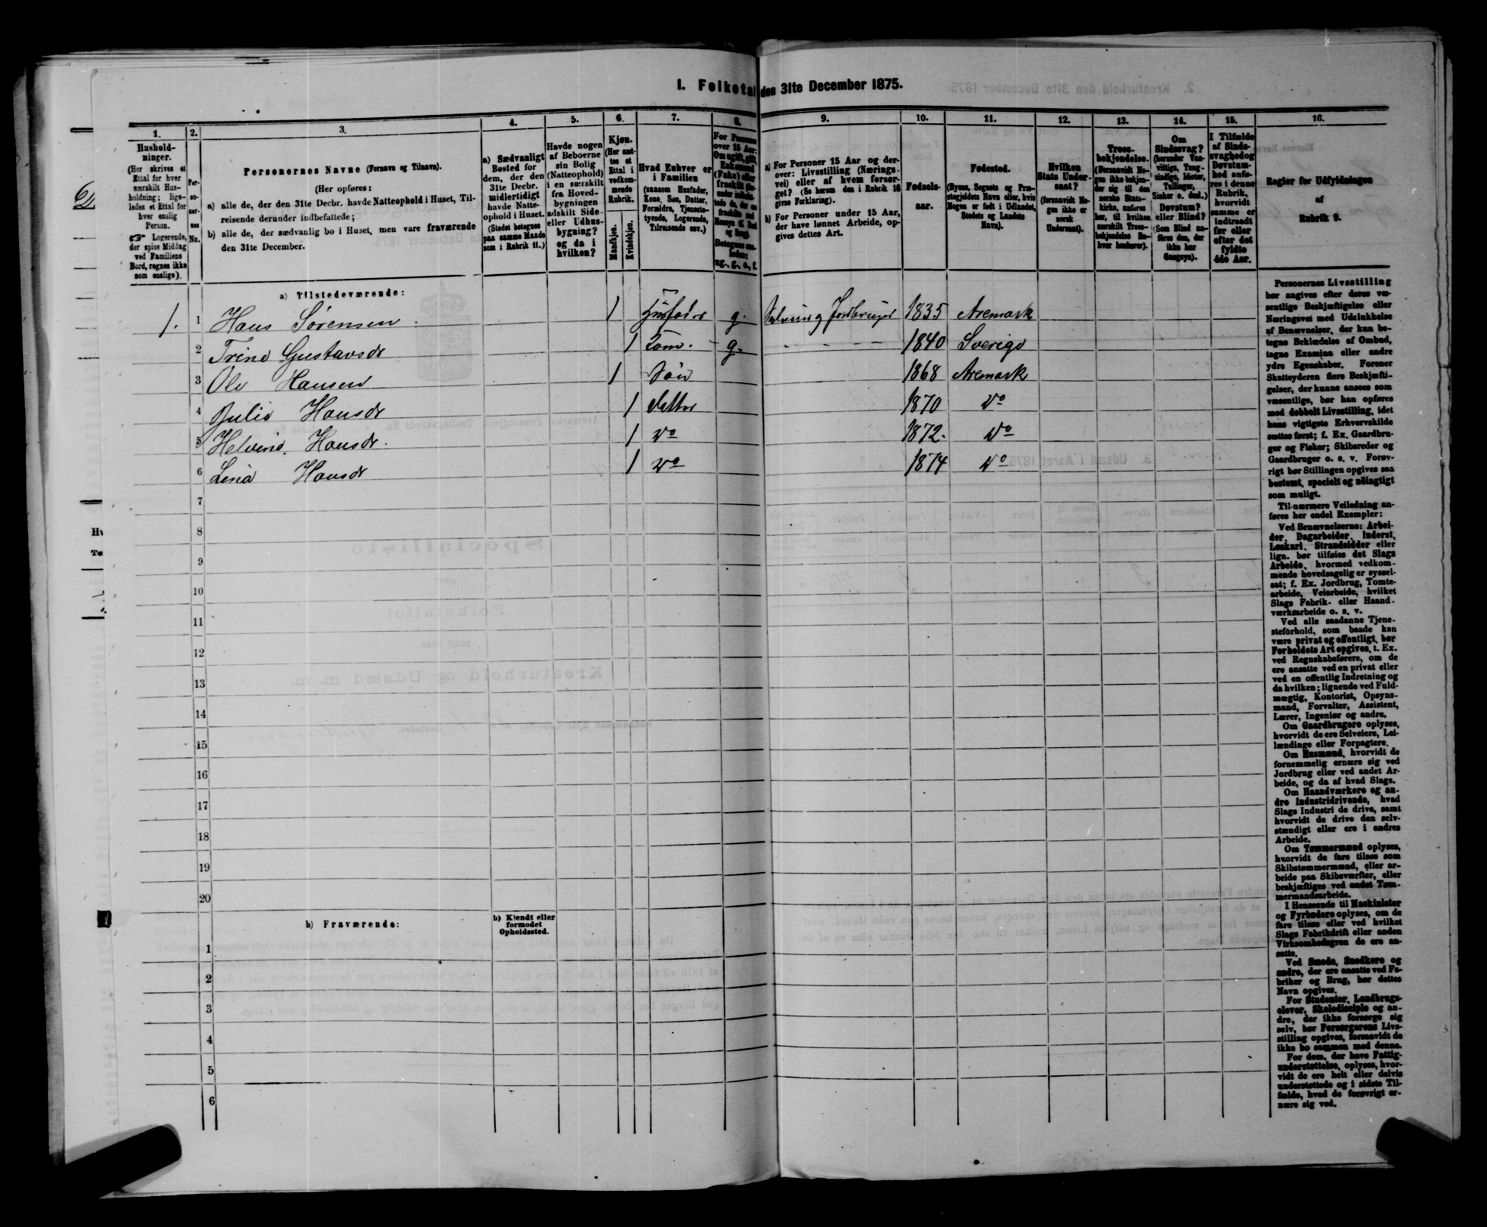 I. Folketal den 31te December 1875.
1.
2.
3.
4.
5.
6.
7.
8.
9.
10.
11.
12.
13.
14.
15.
16.
Hushold-
ninger.
(Her skrives et
Ettal for hver
særskilt Hus-
holdning; lige-
ledes et Ettal for
hver enslig
Person.
☞ Logerende,
der spise Middag
ved Familiens
Bord, regnes ikke
som enslige).
Per-
so-
ner-
nes
No.
Personernes Navne (Fornavn og Tilnavn).
(Her opføres:
a) alle de, der den 31te Decbr. havde Natteophold i Huset, Til-
reisende derunder indbefattede;
b) alle de, der sædvanlig bo i Huset, men vare fraværende
den 31te December.
a) Sædvanligt
Bosted for
dem, der den
31te Decbr.
midlertidigt
havde Natte-
ophold i Huset.
(Stedet betegnes
paa samme Maade
som i Rubrik 11.)
Havde nogen
af Beboerne
sin Bolig
(Natteophold)
i en særskilt
fra Hoved-
bygningen
adskilt Side-
eller Udhus-
bygning?
og da i
hvilken?
Kjøn.
(Her sæt-
tes et
Ettal i
vedkom-
mende
Rubrik.
Mandkjøn.
Kvindekjøn.
Hvad Enhver er
i Familien
(saasom Husfader,
Kone, Søn, Datter,
Forældre, Tjeneste-
tyende, Logerende,
Tilreisende osv.)
a) For Personer 15 Aar og der-
over: Livsstilling (Nærings-
vei) eller af hvem forsør-
get? (Se herom den i Rubrik 16
givne Forklaring).
b) For Personer under 15 Aar,
der have lønnet Arbeide, op-
gives dettes Art.
Fødsels-
aar.
Fødested.
(Byens, Sognets og Præ-
stegjældets Navn eller, hvis
Nogen er født i Udlandet,
Stedets og Landets
Navn).
Hvilken
Stats Under-
saat?
(forsaavidt No-
gen ikke er
norsk
Undersaat).
Troes-
bekjendelse.
Om
Sindssvag?
Døvstum?
eller Blind?
I Tilfælde
af Sinds-
svaghed og
Døvstum-
hed anfø-
res i denne
Rubrik,
hvorvidt
samme er
indtraadt
før eller
efter det
fyldte
4de Aar.
Regler for Udfyldningen
af
Rubrik 9.
a) Tilstedeværende:
1. 1 Hans Sørensen 1 Husfader g. Selveier g Jordbruger 1835 Aremark
2 Trine Gustavsdr 1 Kone g. 1840 Sverige
3 Ole Hansen 1 Søn 1868 Aremark
4 Julie Hansdr 1 Datter 1870 Do
5 Helvine Hansdr. 1 Do 1872. Do
6 Lena Hansdr 1 Do 1874 Do
7
8
9
10
11
12
13
14
15
16
17
18
19
20
b) Fraværende:
b) Kjendt eller
formodet
Opholdssted.
1
2
3
4
5
6
Personernes Livsstilling
bør angives efter deres væ-
sentlige Beskjæftigelse eller
Næringsvei med Udelukkelse
af Benævnelser, der kun be-
tegne Beklædelse af Ombud,
tagne Examina eller andre
ydre Egenskaber. Forener
Skatteyderen flere Beskjæfti-
gelser, der kunne ansees som
væsentlige, bør han opføres
med dobbelt Livsstilling, idet
hans vigtigste Erhvervskilde
sættes først; f. Ex. Gaardbru-
ger og Fisker; Skibsreder og
Gaardbruger o. s. v. Forøv-
rigt bør Stillingen opgives saa
bestemt, specielt og nöiagtigt
som muligt.
Til nærmere Veiledning an-
føres her endel Exempler:
Ved Benævnelserne: Arbei-
der, Dagarbeider, Inderst,
Løskarl, Strandsidder eller
lign. bør tilføies det Slags
Arbeide, hvormed vedkom-
mende hovedsagelig er syssel-
sat; f. Ex. Jordbrug, Tomte-
arbeide, Veiarbeide, hvilket
Slags Fabrik- eller Haand-
værksarbeide o. s. v.
Ved alle saadanne Tjene-
steforhold, som baade kan
være privat og offentligt, bør
Forholdets Art opgives, t. Ex.
ved Regnskabsførere, om de
ere ansatte ved en privat eller
ved en offentlig Indretning og
da hvilken; lignende ved Fuld-
mægtig, Kontorist, Opsyns-
mand, Forvalter, Assistent,
Lærer, Ingeniør og andre.
Om Gaardbrugere oplyses,
hvorvidt de ere Selveiere, Lei-
lændinge eller Forpagtere.
Om Husmænd, hvorvidt de
fornemmelig ernære sig ved
Jordbrug eller ved andet Ar-
beide, og da af hvad Slags.
Om Haandværkere og an-
dre Industridrivende, hvad
Slags Industri de drive, samt
hvorvidt de drive den selv-
stændigt eller ere i andres
Arbeide.
Om Tømmermænd oplyses,
hvorvidt de fare tilsøs som
Skibstømmermænd, eller ar-
beide paa Skibsværfter, eller
beskjæftiges ved andet Tøm-
mermandsarbeide.
I Henseende til Maskinister
og Fyrbødere oplyses, om de
fare tilsøs eller ved hvilket
Slags Fabrikdrift eller anden
Virksomhedsgren de ere an-
satte.
Ved Smede, Snedkere og
andre, der ere ansatte ved Fa-
briker og Brug, bør dettes
Navn opgives.
For Studenter, Landbrugs-
elever, Skoledisciple og an-
dre, der ikke forsørge sig
selv, bør Forsørgerens Livs-
stilling opgives, forsaavidt de
ikke bo sammen med denne.
For dem, der have Fattig-
understøttelse, oplyses, hvor-
vidt de ere helt eller delvis
understøttede og i sidste Til-
fælde, hvad de forøvrigt er-
nære sig ved.